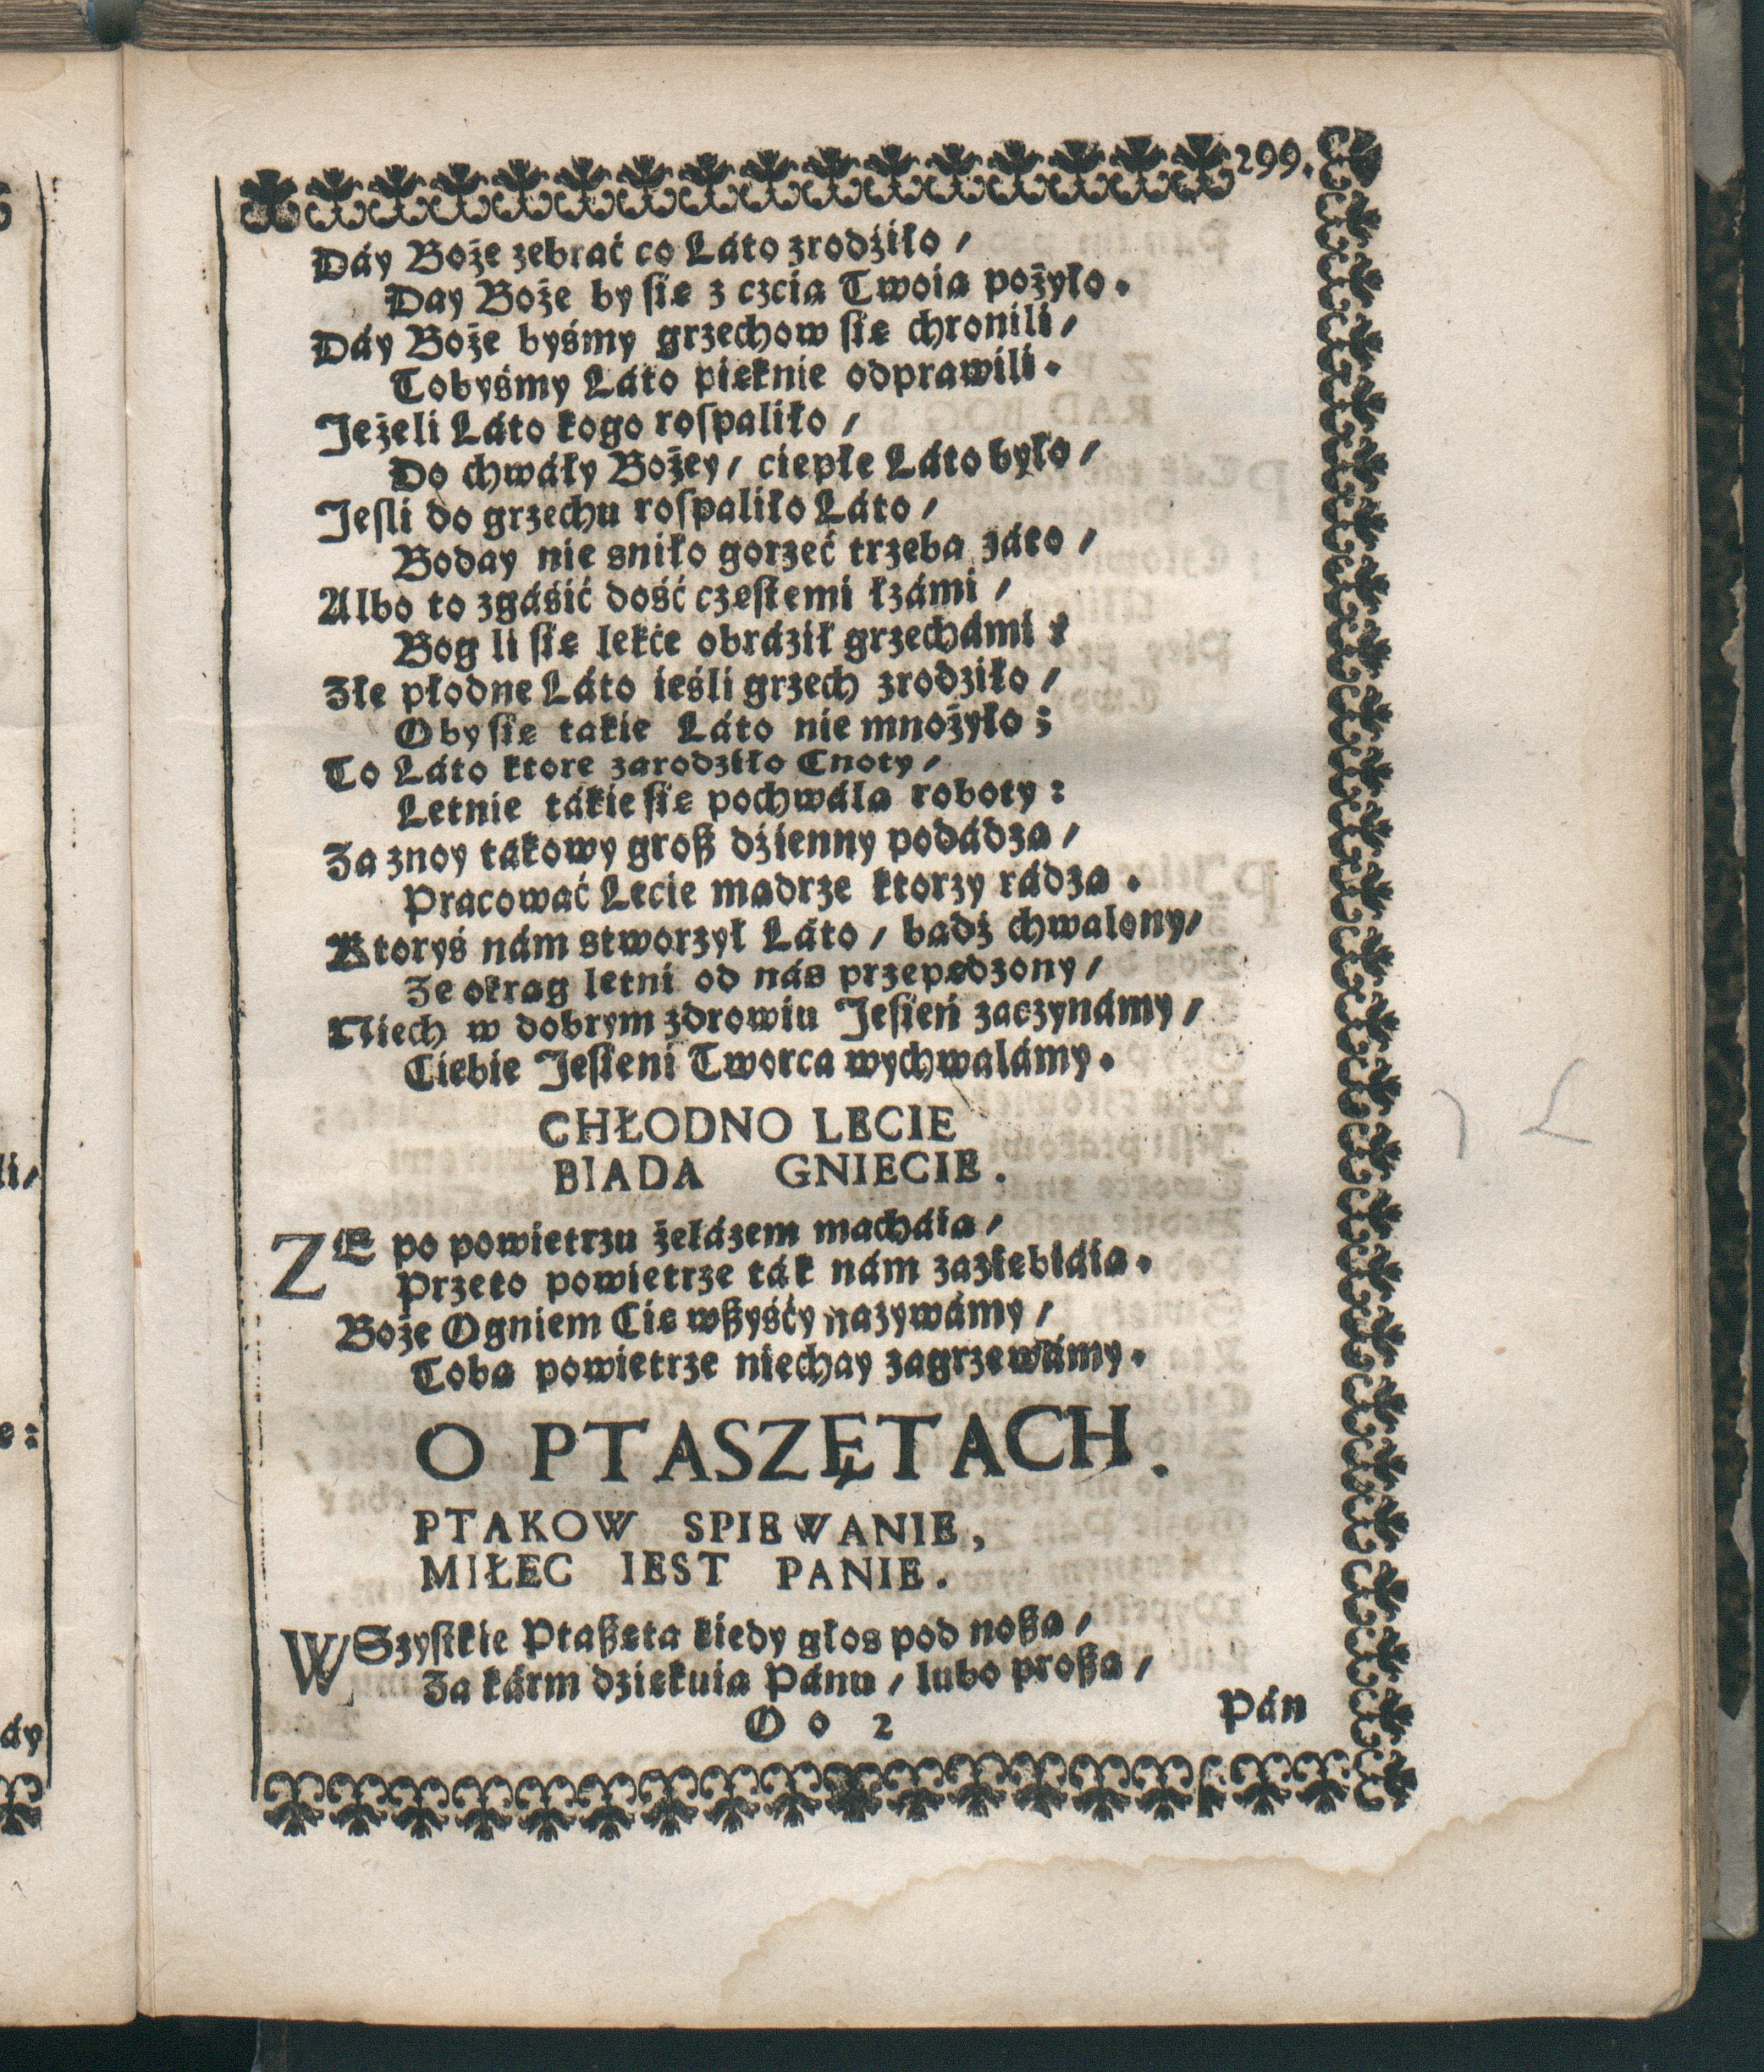 299.
Dáy Boże zebrać co Láto zrodźiło /
Day Boże by się z czcią Twoią pożyło.
Dáy Boże byśmy grzechow się chronili /
Tobyśmy Láto pięknie odprawili.
Jeżeli Láto kogo rospaliło /
Do chwały Bożey / ciepłe Láto było /
Jesli do grzechu rospaliło Láto /
Boday nie sniło gorzeć trzeba záto /
Albo to zgáśić dość częstemi łzámi /
Bog li się lekce obráźił grzechámi ?
Złe płodne Láto ieśli grzech zrodziło /
Oby się takie Láto nie mnożyło ;
To Láto ktore zarodziło Cnoty /
Letnie tákie się pochwalą roboty :
Za znoy takowy grosz dźienny podádzą /
Pracowáć Lecie mądrze ktorzy rádzą .
Ktoryś nám stworzył Láto / bądź chwalony /
Ze okrąg letni od nás przepędzony /
Niech w dobrym zdrowiu Jesień zaczynámy /
Ciebie Jesieni Tworca wychwalámy .
CHŁODNO LECIE
BIADA GNIECIE.
ZE po powietrzu żelázem macháią /
Przeto powietrze ták nám zaziębiáią .
Boże Ogniem Cię wszyśćy nazywámy /
Tobą powietrze niechay zagrzewámy .
O PTASZĘTACH.
PTAKOW SPIEWANIE,
MIŁEC IEST PANIE.
WSzystkie Ptaszęta kiedy głos pod noszą /
Za kárm dziękuią Pánu / lubo proszą /
O o 2
Pán
li /
e :
áy